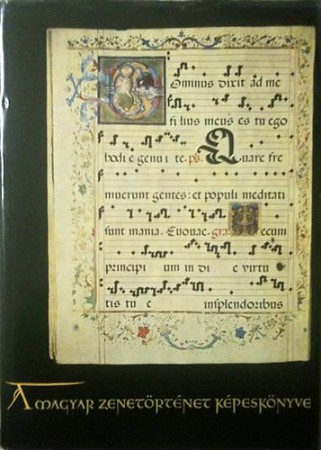 Dominus dixit ad me
filius meus es tu ego
hodie genui te. ps. Quare fre
muerunt gentes: et populi meditati
sunt inania. Euouae. gra Tecum
principi um in di e virtu
tis tu e in splendoribus
A MAGYAR ZENETÖRTÉNET KÉPESKÖNYVE